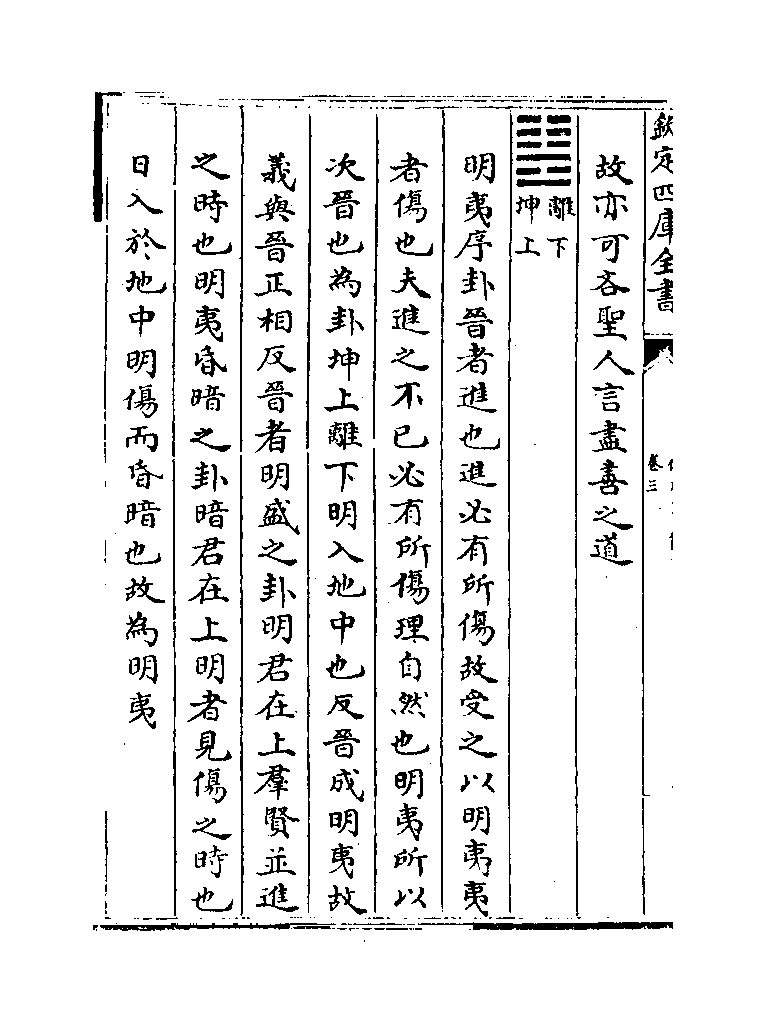 欽定四庫全書
卷三
故亦可吝聖人言盡善之道
離下
坤上
明夷序卦晉者進也進必有所傷故受之以明夷夷
者傷也夫進之不已必有所傷理自然也明夷所以
次晉也為卦坤上離下明入地中也反晉成明夷故
義與晉正相反晉者明盛之卦明君在上羣賢並進
之時也明夷昏暗之卦暗君在上明者見傷之時也
日入於地中明傷而昏暗也故為明夷